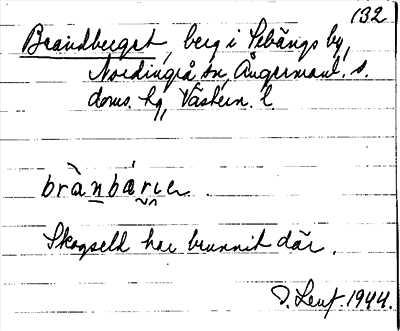 132
Brandberget, berg i Sebångs by,
Nordingrå sn, Ångermanl. s.
doms. hg, Västern. l.
Skogseld har brunnit där.
1944.